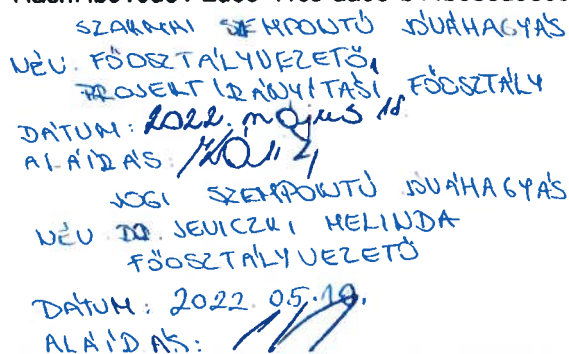 SZAKMAI SZEMPONTÚ JÓVÁHAGYÁS
NÉV FŐOSZTÁLYVEZETŐ,
PROJEKTIRÁNYÍTÁSI FŐOSZTÁLY
DÁTUM: 2022. május 18
ALÁÍRÁS:
JOGI SZEMPONTÚ JÓVÁHAGYÁS
NÉV DR. JEVICZKI MELINDA
FŐOSZTÁLYVEZETŐ
DÁTUM: 2022.05.19.
ALÁÍRÁS: